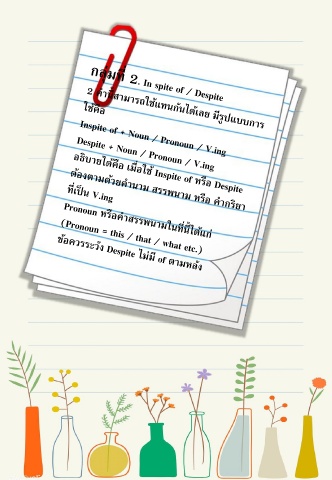 กลุ่มที่ 2. In spite of / Despite
2 คำนี้สามารถใช้แทนกันได้เลย มีรูปแบบการ
ใช้คือ
Inspite of + Noun / Pronoun / V.ing
Despite + Noun / Pronoun / V.ing
อธิบายได้คือ เมื่อใช้ Inspite of หรือ Despite
ต้องตามด้วยคำนาม สรรพนาม หรือ คำกริยา
ที่เป็น V.ing
Pronoun หรือคำสรรพนามในที่นี้ได้แก่
(Pronoun = this / that / what etc.)
ข้อควรระวัง Despite ไม่มี of ตามหลัง